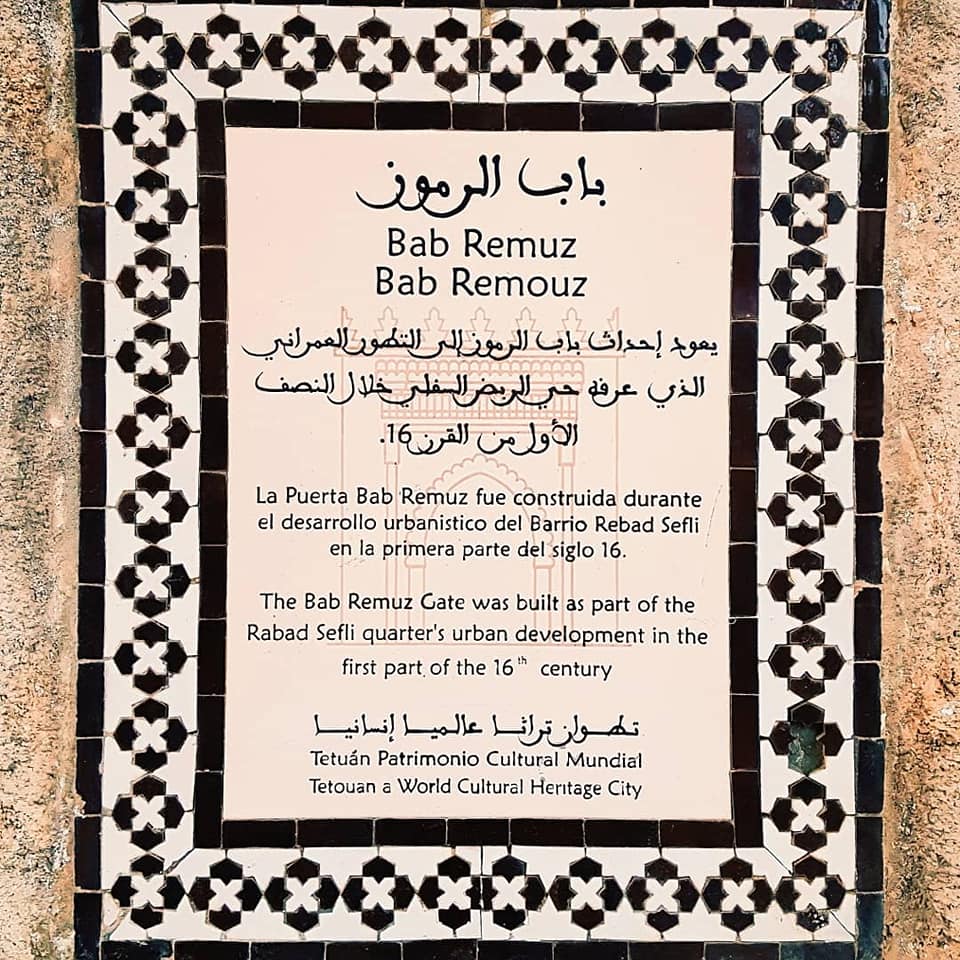 باب الرموز
Bab Remuz
Bab Remouz
يعود إحداث باب الرموز إلى التطور العمراني
الذي عرفه حي الربض السفلي خلال النصف
الأول من القرن 16.
La Puerta Bab Remuz fue construida durante
el desarrollo urbanistico del Barrio Rebad Sefli
en la primera parte del siglo 16.
The Bab Remuz Gate was built as part of the
Rabad Sefli quarter's urban development in the
first part of the 16th century
تطوان تراثا عالميا إنسانيا
Tetuán Patrimonio Cultural Mundial
Tetouan a World Cultural Heritage City